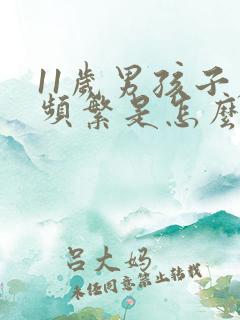 11歲男孩子
頻繁是怎麼
呂大媽
未经同意禁止转载